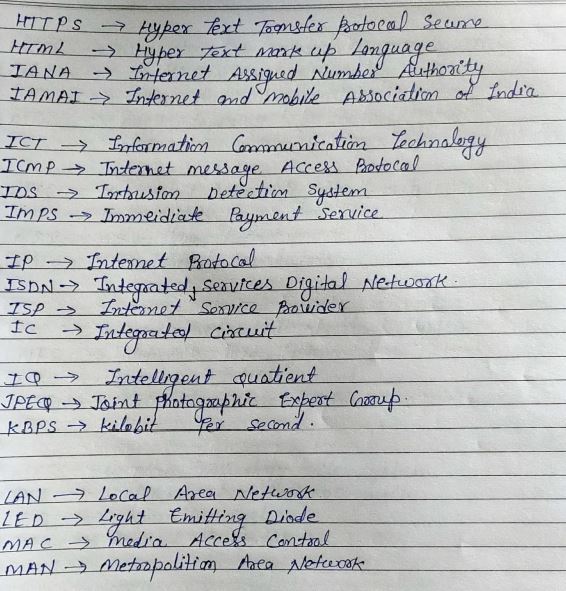 HTTPS → Hyper Text Transfer Protocal Secure
HTML → Hyper Text Mark up Language
IANA → Internet Assigned Number Authority
IAMAI → Internet and Mobile Association of India
ICT → Information Communication Technology
ICMP → Internet message Access Protocal
IDS → Intrusion Detection System
IMPS → Immeidiate Payment Service
IP → Internet Protocal
ISDN → Integrated Services Digital Network.
ISP → Internet Service Provider
IC → Integrated circuit
IQ → Intelligent quotient
JPEG → Joint Photographic Expert Group.
KBPS → kilobit Per second.
LAN → Local Area Network
LED → Light Emitting Diode
MAC → Media Access Control
MAN → Metropolition Area Network